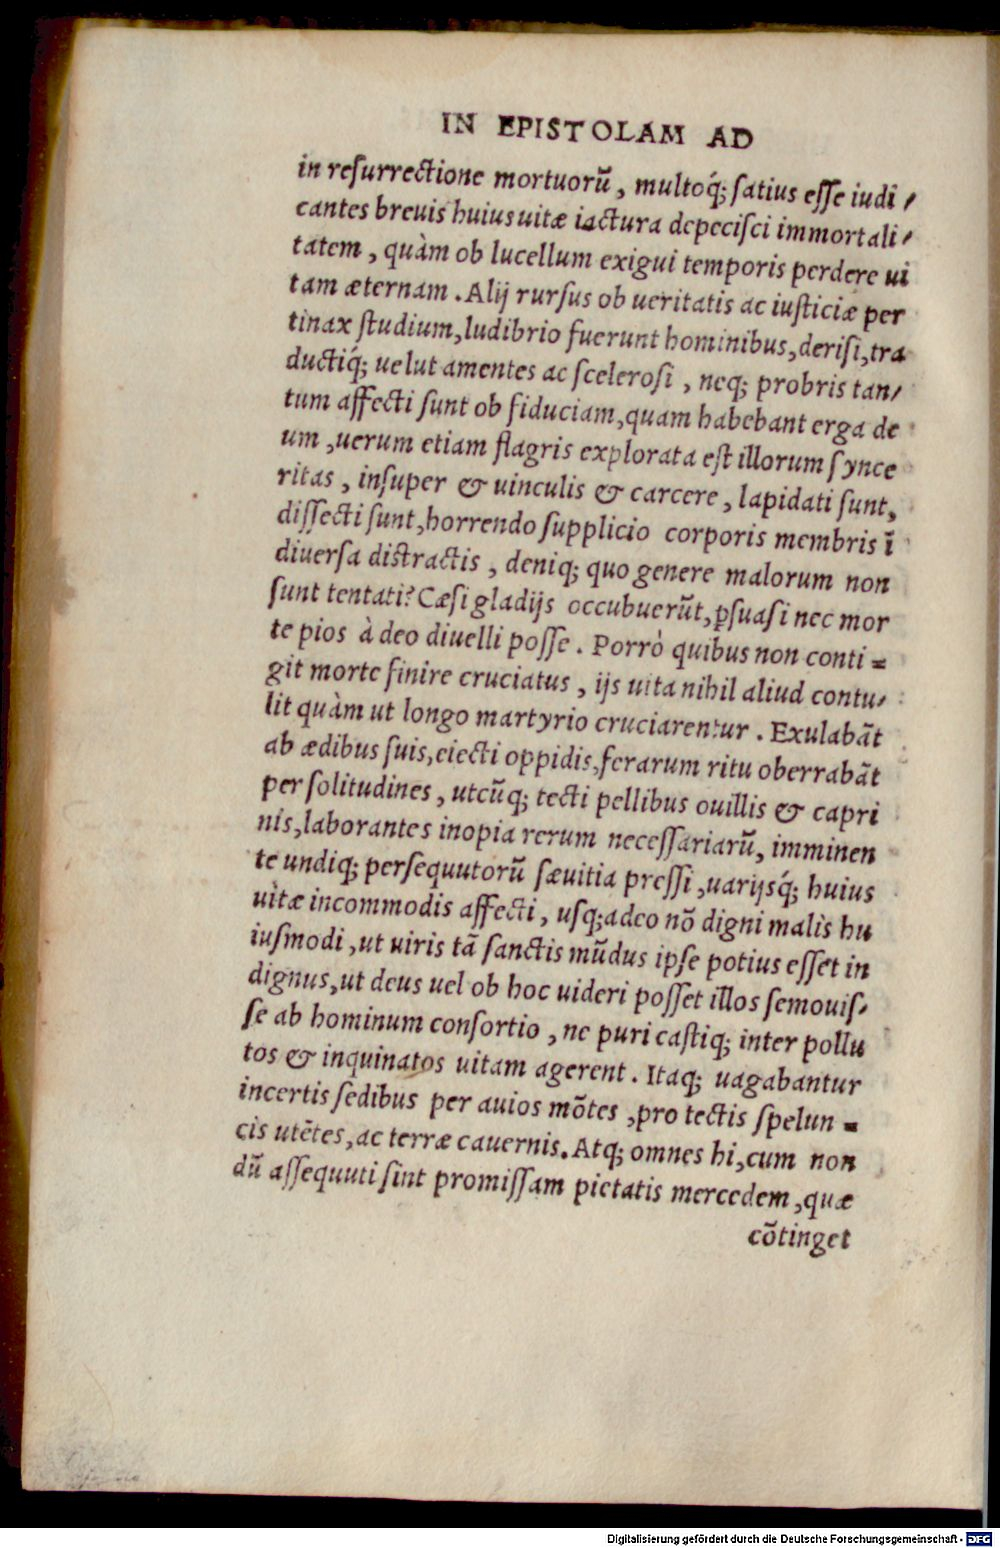 IN EPISTOLAM AD
in resurrectione mortuorũ, multoq́; satius esse iudi⸗
cantes breuis huius uitæ iactura depecisci immortali⸗
tatem, quàm ob lucellum exigui temporis perdere ui
tam æternam. Alij rursus ob ueritatis ac iusticiæ per
tinax studium, ludibrio fuerunt hominibus, derisi, tra
ductiq́; uelut amentes ac scelerosi, neq; probris tan⸗
tum affecti sunt ob fiduciam, quam habebant erga de
um, uerum etiam flagris explorata est illorum synce
ritas, insuper & uinculis & carcere, lapidati sunt,
dissecti sunt, horrendo supplicio corporis membris ĩ
diuersa distractis, deniq; quo genere malorum non
sunt tentati? Cæsi gladijs occubuerũt, ꝑsuasi nec mor
te pios à deo diuelli posse. Porrò quibus non conti⸗
git morte finire cruciatus, ijs uita nihil aliud contu⸗
lit quàm ut longo martyrio cruciarentur. Exulabãt
ab ædibus suis, eiecti oppidis, ferarum ritu oberrabãt
per solitudines, utcũq; tecti pellibus ouillis & capri
nis, laborantes inopia rerum necessariarũ, imminen
te undiq; persequutorũ sæuitia pressi, uarijsq́; huius
uitæ incommodis affecti, usq; adeo nõ digni malis hu
iusmodi, ut uiris tã sanctis mũdus ipse potius esset in
dignus, ut deus uel ob hoc uideri posset illos semouis⸗
se ab hominum consortio, ne puri castiq; inter pollu
tos & inquinatos uitam agerent. Itaq; uagabantur
incertis sedibus per auios mõtes, pro tectis spelun⸗
cis utẽtes, ac terræ cauernis. Atq; omnes hi, cum non
dũ assequuti sint promissam pietatis mercedem, quæ
cõtinget
Digitalisierung gefördert durch die Deutsche Forschungsgemeinschaft - DFG